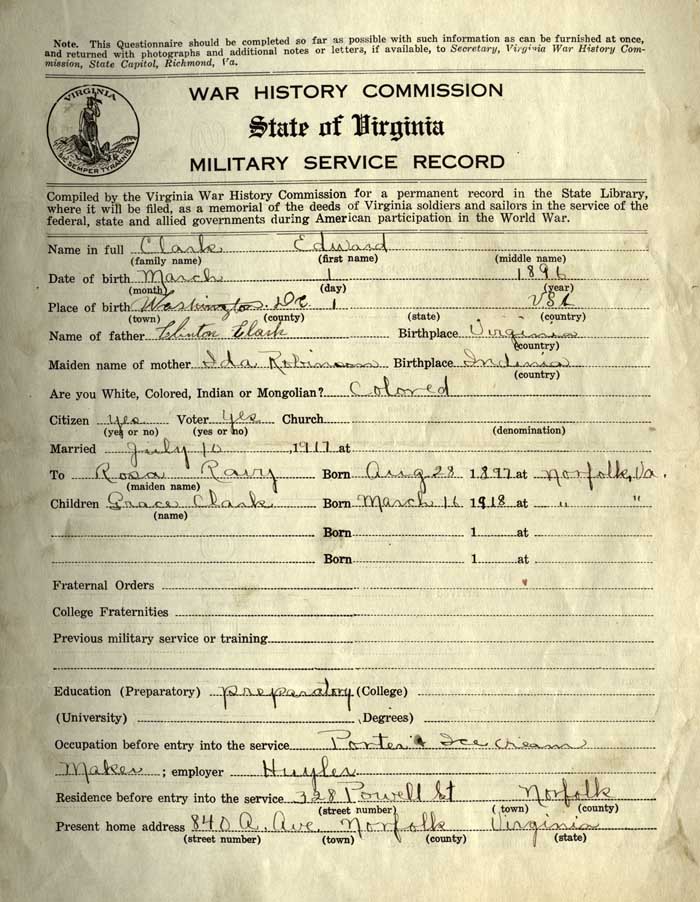 Note. This Questionnaire should be completed so far as possible with such information as can be furnished at once,
and returned with photographs and additional notes or letters, if available, to Secretary, Virginia War History Com-
mission, State Capitol, Richmond, Va.
VIRGINIA
SIC SEMPER TYRANNIS
WAR HISTORY COMMISSION
State of Virginia
MILITARY SERVICE RECORD
Compiled by the Virginia War History Commission for a permanent record in the State Library,
where it will be filed, as a memorial of the deeds of Virginia soldiers and sailors in the service of the
federal, state and allied governments during American participation in the World War.
Name in full Clark Edward
(family name) (first name) (middle name)
Date of birth March 1 1896
(month) (day) (year)
Place of birth Washington. D.C. USA
(town) (county) (state) (country)
Name of father Clinton Clark Birthplace Virginia
(country)
Maiden name of mother Ida Robinson Birthplace Indinia
(country)
Are you White, Colored, Indian or Mongolian? Colored
Citizen yes Voter yes Church
(yes or no) (yes or no) (denomination)
Married July 10, 1917 at
To Rosa Born Aug 28 1897 at Norfolk, Va.
(maiden name)
Children Grace Clark Born March 16 1918 at " "
(name)
Born 1 at
Born 1 at
Fraternal Orders
College Fraternities
Previous military service or training
Education (Preparatory) preparatory (College)
(University) (Degrees)
Occupation before entry into the service Porter & Ice cream
Maker ; employer Huyler
Residence before entry into the service 328 Powell St Norfolk
(street number) (town) (county)
Present home address 840 A. Ave. Norfolk Virginia
(street number) (town) (county) (state)